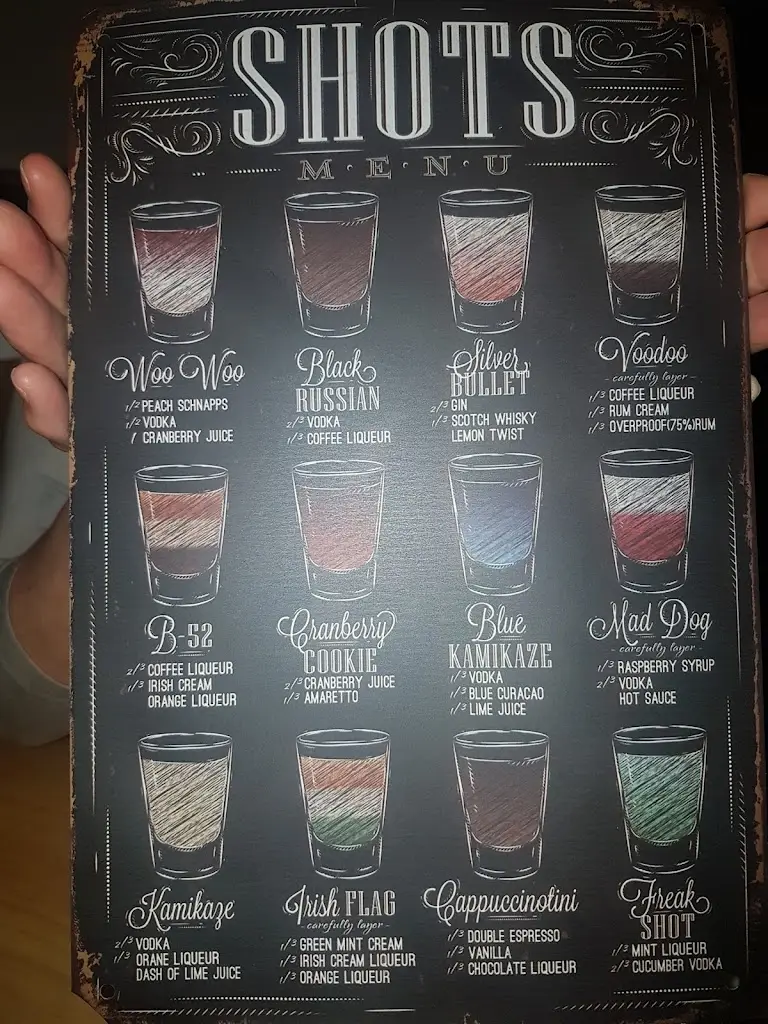 SHOTS
M·E·N·U
Woo Woo
1/2 PEACH SCHNAPPS
1/2 VODKA
/ CRANBERRY JUICE
Black
RUSSIAN
2/3 VODKA
1/3 COFFEE LIQUEUR
Silver
BULLET
2/3 GIN
1/3 SCOTCH WHISKY
LEMON TWIST
Voodoo
- carefully layer -
1/3 COFFEE LIQUEUR
1/3 RUM CREAM
1/3 OVERPROOF(75%)RUM
B-52
2/3 COFFEE LIQUEUR
1/3 IRISH CREAM
ORANGE LIQUEUR
Cranberry
COOKIE
2/3 CRANBERRY JUICE
1/3 AMARETTO
Blue
KAMIKAZE
1/3 VODKA
1/3 BLUE CURACAO
1/3 LIME JUICE
Mad Dog
- carefully layer -
1/3 RASPBERRY SYRUP
2/3 VODKA
HOT SAUCE
Kamikaze
2/3 VODKA
1/3 ORANE LIQUEUR
DASH OF LIME JUICE
Irish FLAG
- carefully layer -
1/3 GREEN MINT CREAM
1/3 IRISH CREAM LIQUEUR
1/3 ORANGE LIQUEUR
Cappuccinotini
1/3 DOUBLE ESPRESSO
1/3 VANILLA
1/3 CHOCOLATE LIQUEUR
Freak
SHOT
1/3 MINT LIQUEUR
2/3 CUCUMBER VODKA